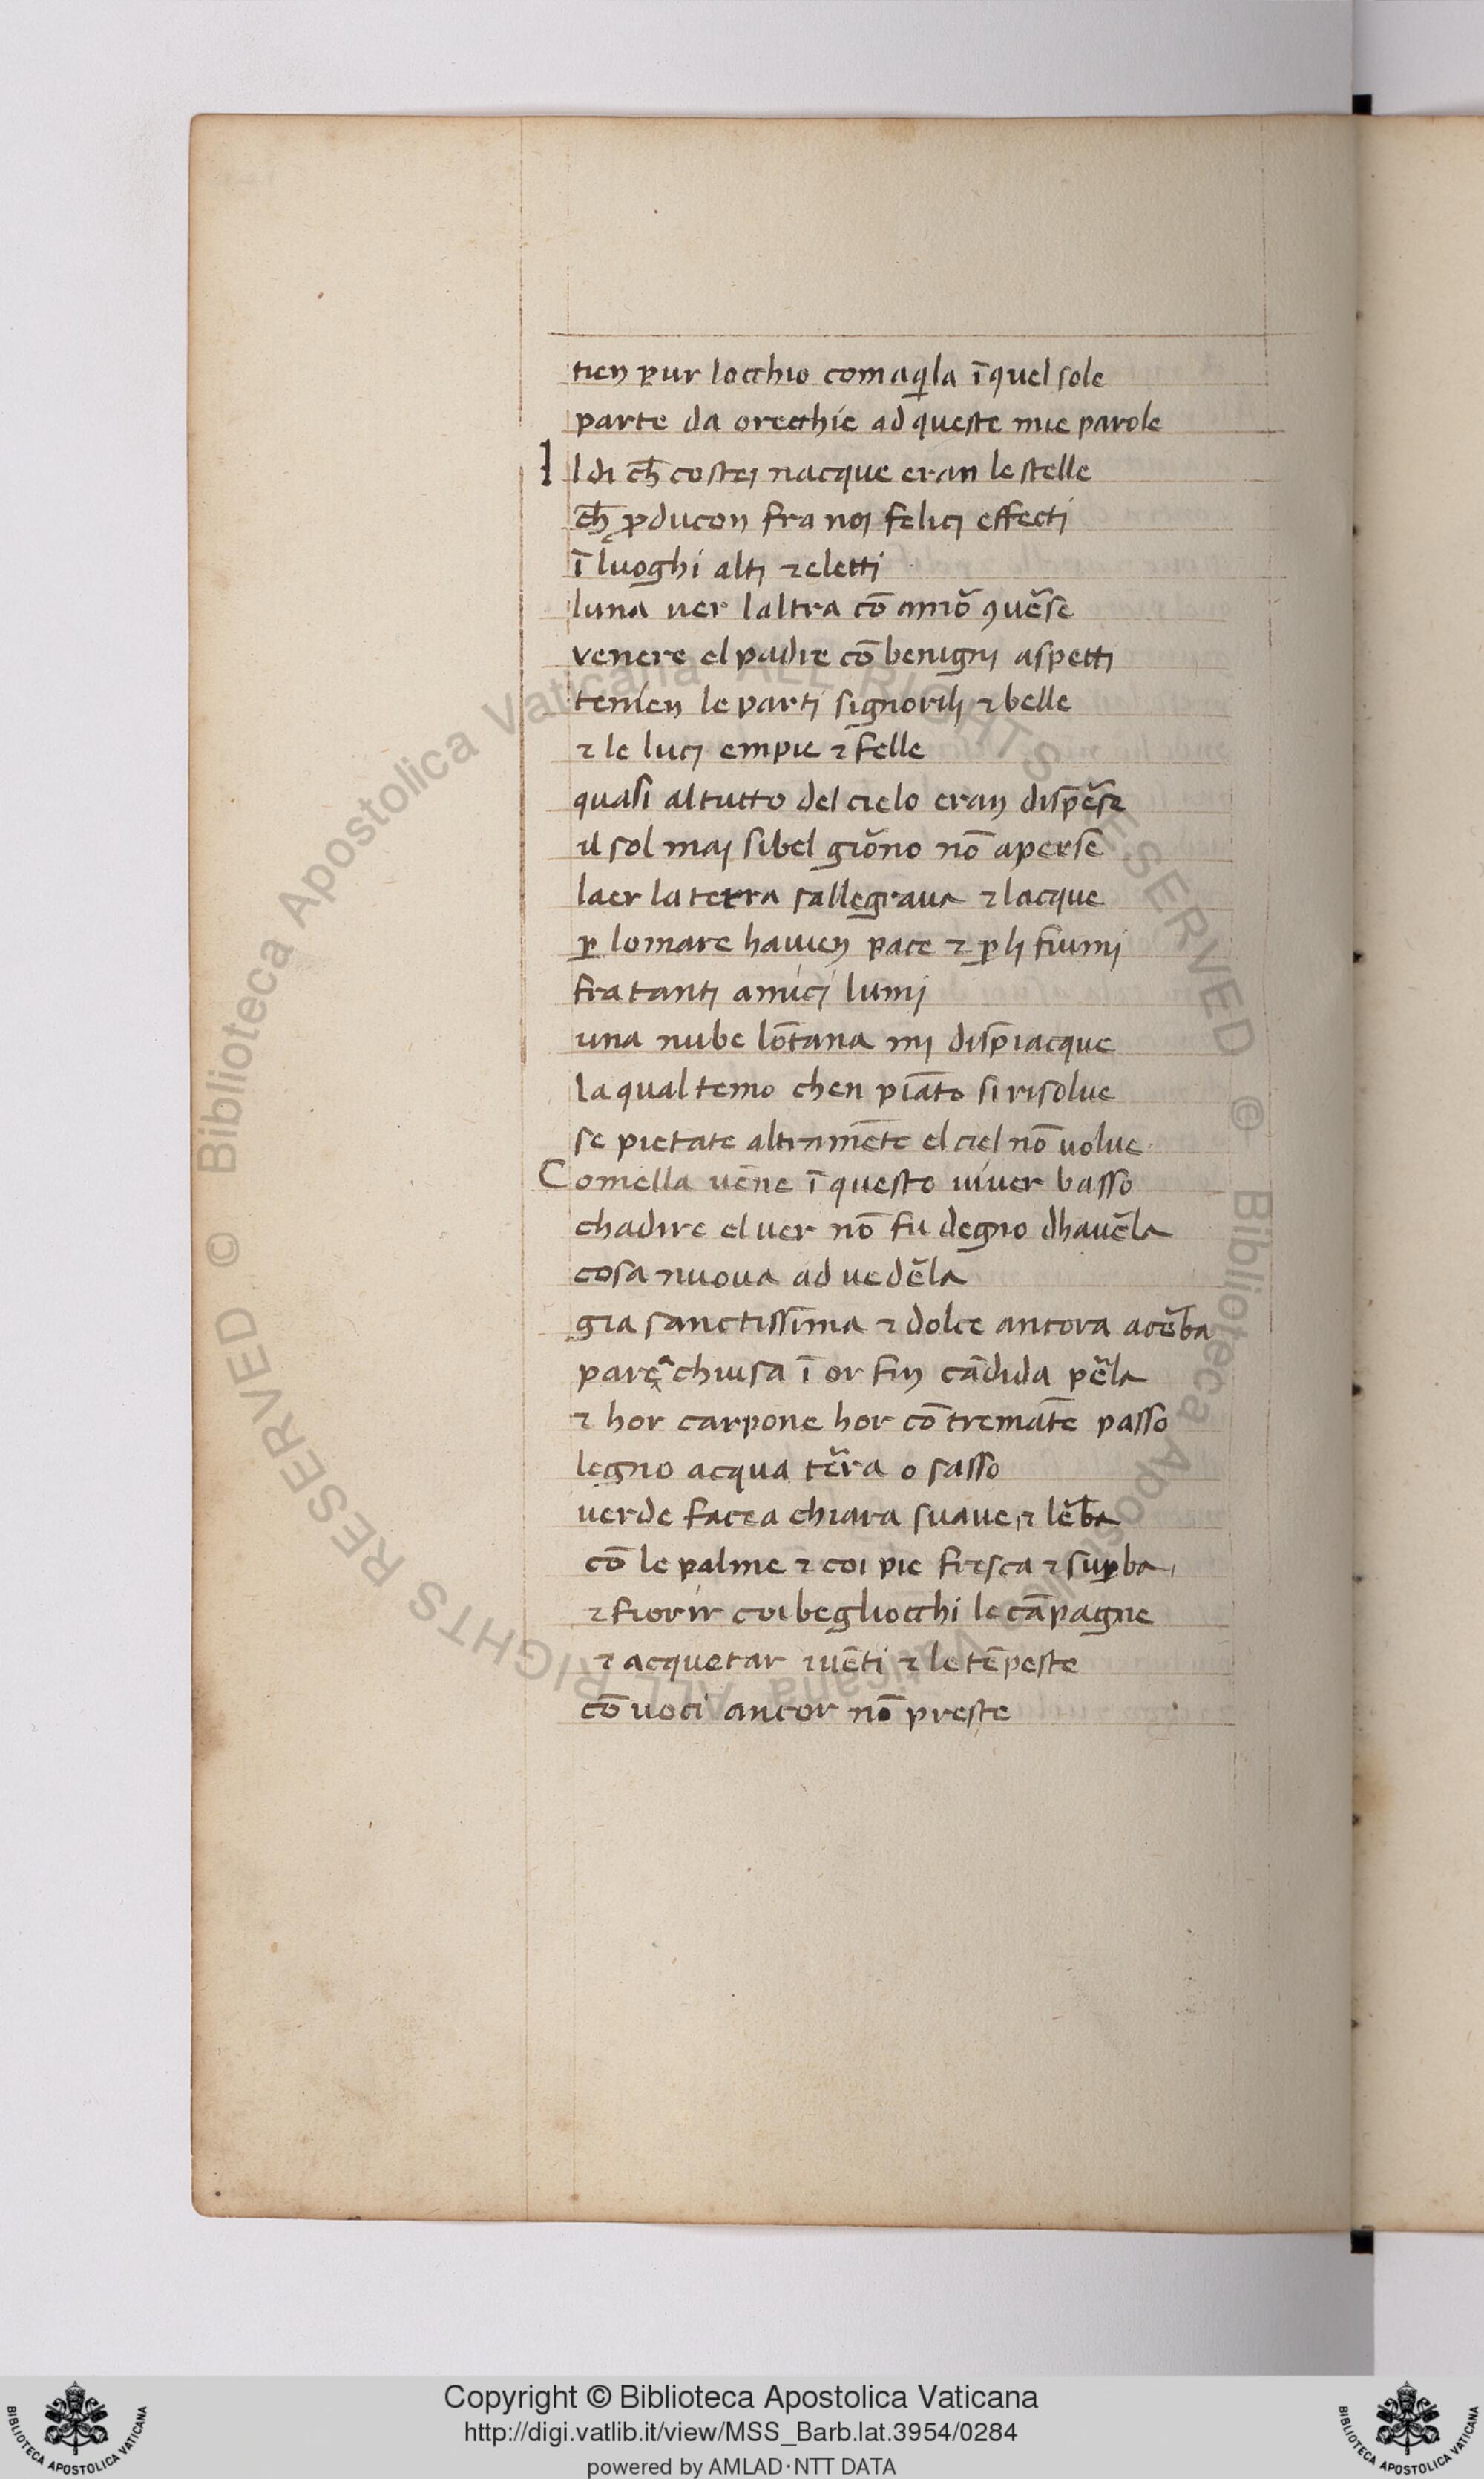 tien pur locchio comaqͥla ī quel sole
parte da orecchie ad queste mie parole
Il di ch̄ costej nacque eran le stelle
ch̄ ꝓducon fra noj felicj effectj
ī luoghi altj ⁊ eletti
luna ver laltra cō amor̆ ꝯuĕrse
venere el padre cō benignj aspettj
tenien le partj signorilj ⁊ belle
⁊ le lucj empie ⁊ felle
quasi al tutto del cielo eran dispĕrse
il sol maj si bel giŏrno nō aperse
laer la terra sallegraua ⁊ lacque
ꝑ lo mare hauien pace ⁊ ꝑ lj fiumj
fra tantj amicj lumj
una nube lōtana mj dispiacque
la qual temo chen piāto si risolue
se pietate altramēte el ciel nō uolue
Comella uēne ī questo uiuer basso
chadire el uer nō fu degno dhauĕla
cosa nuova ad uedĕla
gia sanctissima ⁊ dolce ancora acĕba
parea chiusa ī or fin cādida pĕla
⁊ hor carpone hor cō tremāte passo
legno acqua tĕra o sasso
uerde facea chiara suaue ⁊ lĕba
cō le palme ⁊ coi pie fresca ⁊ suꝑba
⁊ fiorir coi begliocchi le cāpagne
⁊ acquetar i uēti ⁊ le tēpeste
cō uoci ancor nō preste
Copyright © Biblioteca Apostolica Vaticana
http://digi.vatlib.it/view/MSS_Barb.lat.3954/0284
powered by AMLAD·NTT DATA
BIBLIOTECA APOSTOLICA VATICANA
BIBLIOTECA APOSTOLICA VATICANA
© Biblioteca Apostolica Vaticana ALL RIGHTS RESERVED © Biblioteca Apostolica Vaticana ALL RIGHTS RESERVED